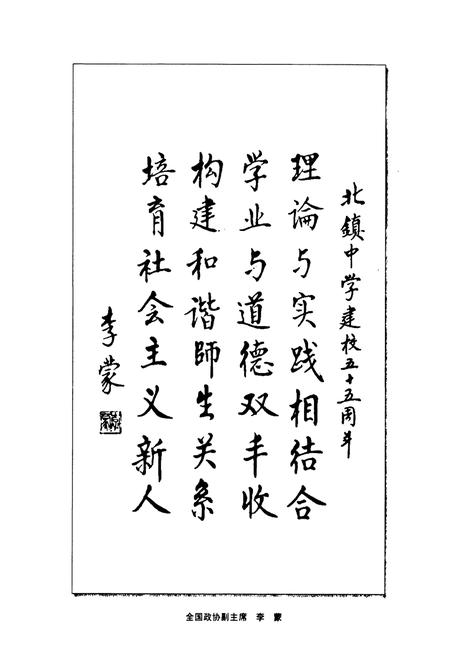 北鎮中学建校五十五周年
理论与实践相结合
学业与道德双丰收
构建和谐師生关系
培育社会主义新人
李蒙
全国政协副主席 李蒙